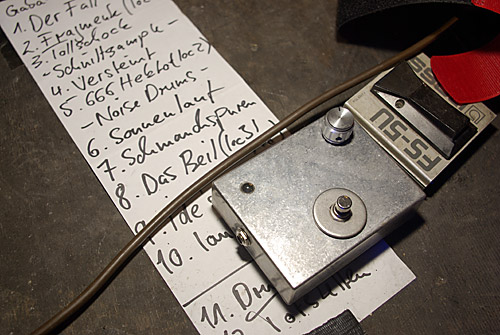 Gaba
1. Der Fall
2. Fragmente (loc
3. Tollschock
- Schnittsample -
4. Versteint
5 666 Hektot (loc2)
- Noise Drums -
6. Sonnenlauf
7. Schmandspuren
8. Das Beil (loc3)
9. Ide
10. lan
11. Dru
12.
FS-5U
BOSS